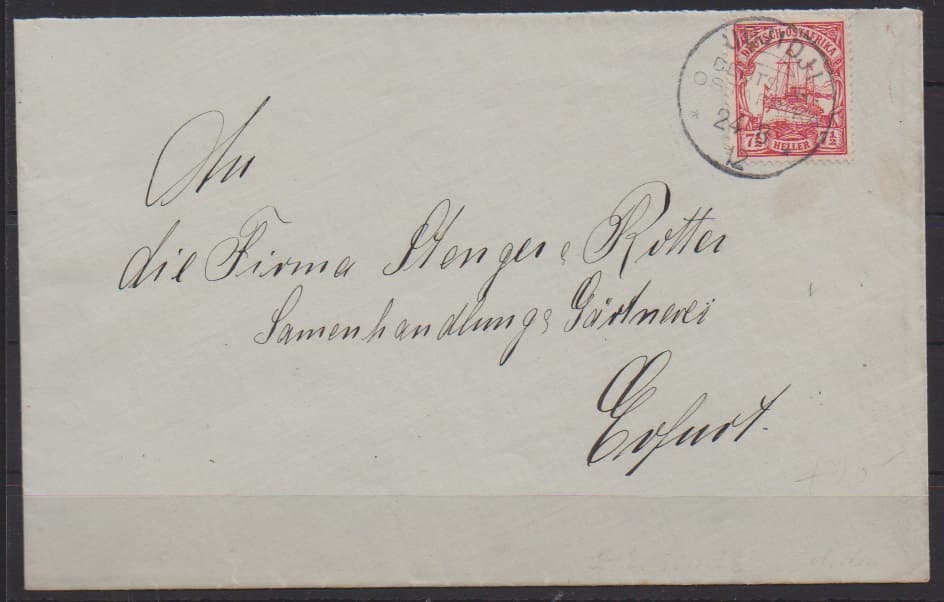 DEUTSCH-OSTAFRIKA
7½ HELLER 7½
UDJIDJI
24 12
An
die Firma Stenger & Rotter
Samenhandlung & Gärtnerei
Erfurt.